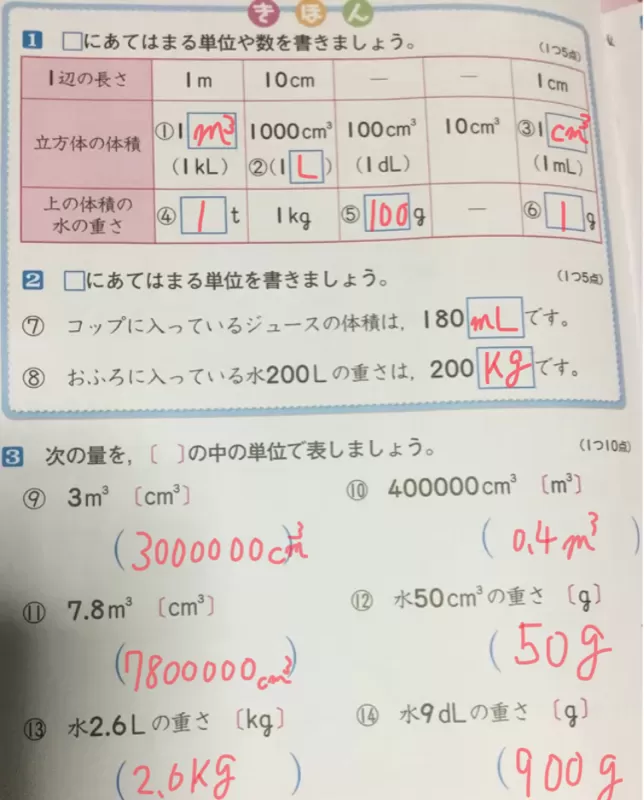 きほん
1 □にあてはまる単位や数を書きましょう。 (1つ5点)
1辺の長さ 1m 10cm — — 1cm
立方体の体積 ①1 m³ 1000cm³ 100cm³ 10cm³ ③1 cm³
(1kL) ②(1 L) (1dL) (1mL)
上の体積の
水の重さ ④ 1 t 1kg ⑤ 100 g — ⑥ 1 g
2 □にあてはまる単位を書きましょう。 (1つ5点)
⑦ コップに入っているジュースの体積は、180 mL です。
⑧ おふろに入っている水200Lの重さは、200 Kg です。
3 次の量を、〔 〕の中の単位で表しましょう。 (1つ10点)
⑨ 3m³ 〔cm³〕 ⑩ 400000cm³ 〔m³〕
(3000000cm³) (0.4m³)
⑪ 7.8m³ 〔cm³〕 ⑫ 水50cm³の重さ 〔g〕
(7800000cm³) (50g
⑬ 水2.6Lの重さ 〔kg〕 ⑭ 水9dLの重さ 〔g〕
(2.6Kg) (900g